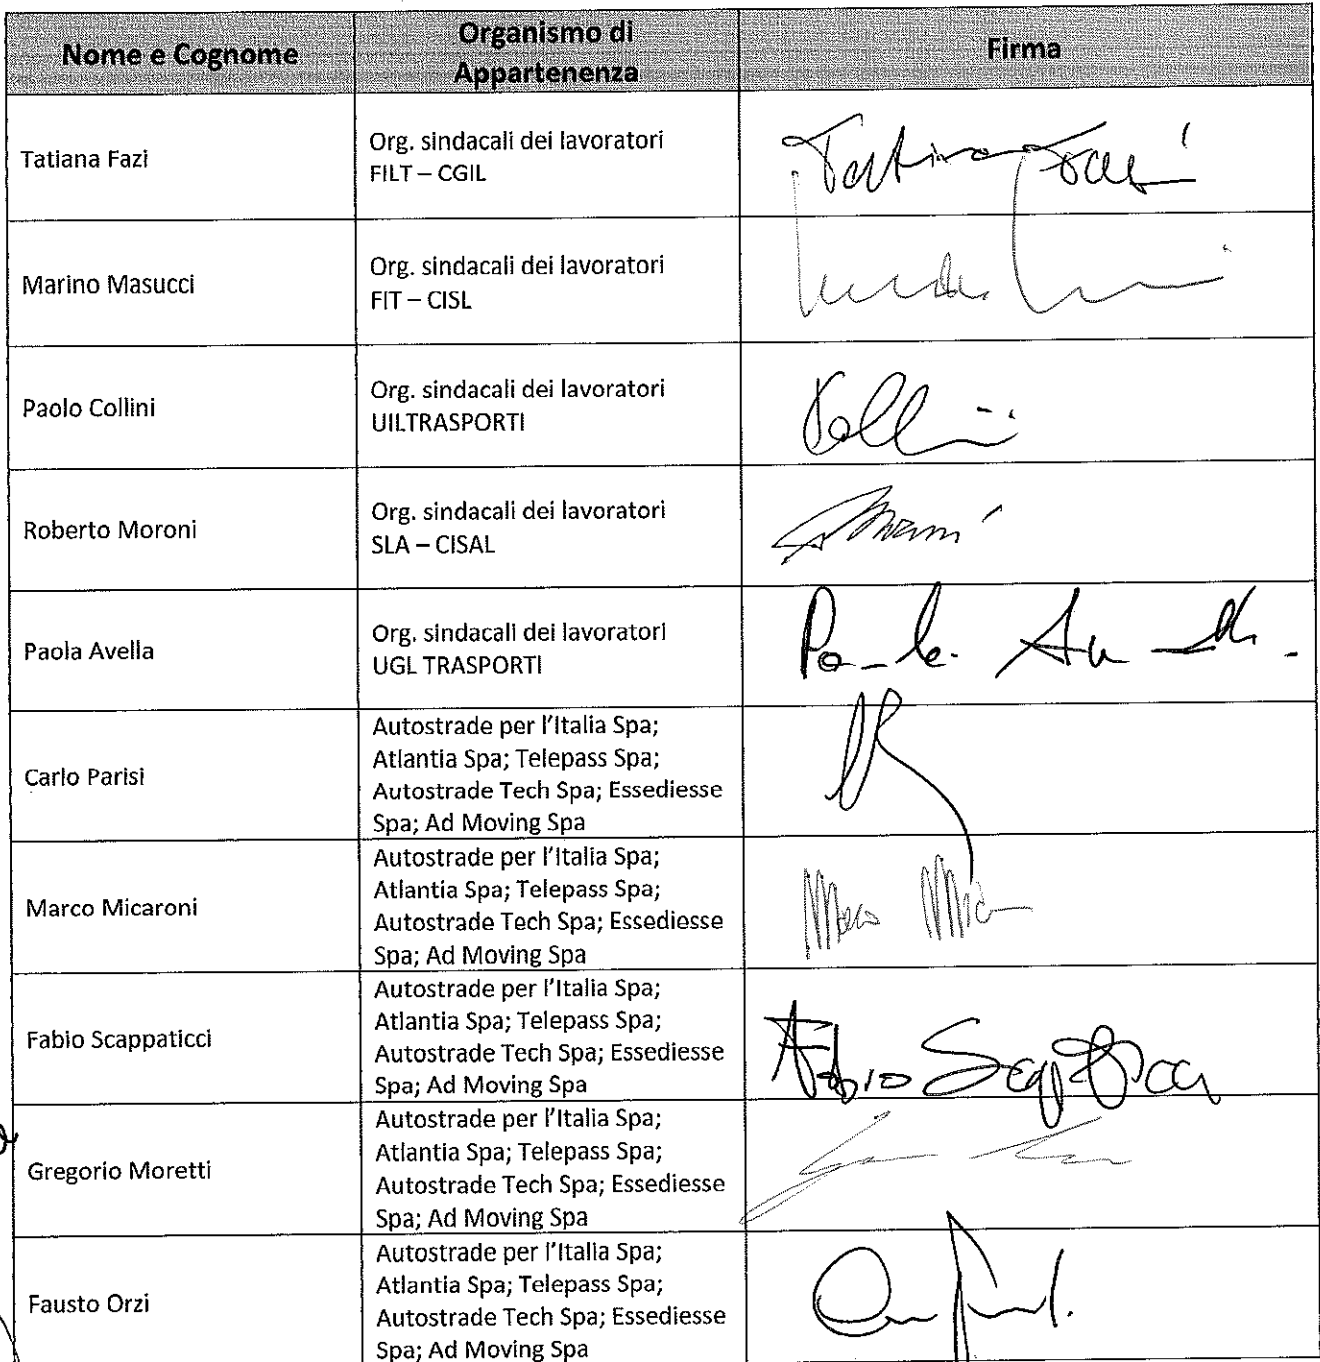 Nome e Cognome
Organismo di
Appartenenza
Firma
Tatiana Fazi
Org. sindacali dei lavoratori
FILT – CGIL
Tatiana Fazi
Marino Masucci
Org. sindacali dei lavoratori
FIT – CISL
Paolo Collini
Org. sindacali dei lavoratori
UILTRASPORTI
Roberto Moroni
Org. sindacali dei lavoratori
SLA – CISAL
Paola Avella
Org. sindacali dei lavoratori
UGL TRASPORTI
Carlo Parisi
Autostrade per l'Italia Spa;
Atlantia Spa; Telepass Spa;
Autostrade Tech Spa; Essediesse
Spa; Ad Moving Spa
Marco Micaroni
Autostrade per l'Italia Spa;
Atlantia Spa; Telepass Spa;
Autostrade Tech Spa; Essediesse
Spa; Ad Moving Spa
Fabio Scappaticci
Autostrade per l'Italia Spa;
Atlantia Spa; Telepass Spa;
Autostrade Tech Spa; Essediesse
Spa; Ad Moving Spa
Fabio Scappaticci
Gregorio Moretti
Autostrade per l'Italia Spa;
Atlantia Spa; Telepass Spa;
Autostrade Tech Spa; Essediesse
Spa; Ad Moving Spa
Fausto Orzi
Autostrade per l'Italia Spa;
Atlantia Spa; Telepass Spa;
Autostrade Tech Spa; Essediesse
Spa; Ad Moving Spa